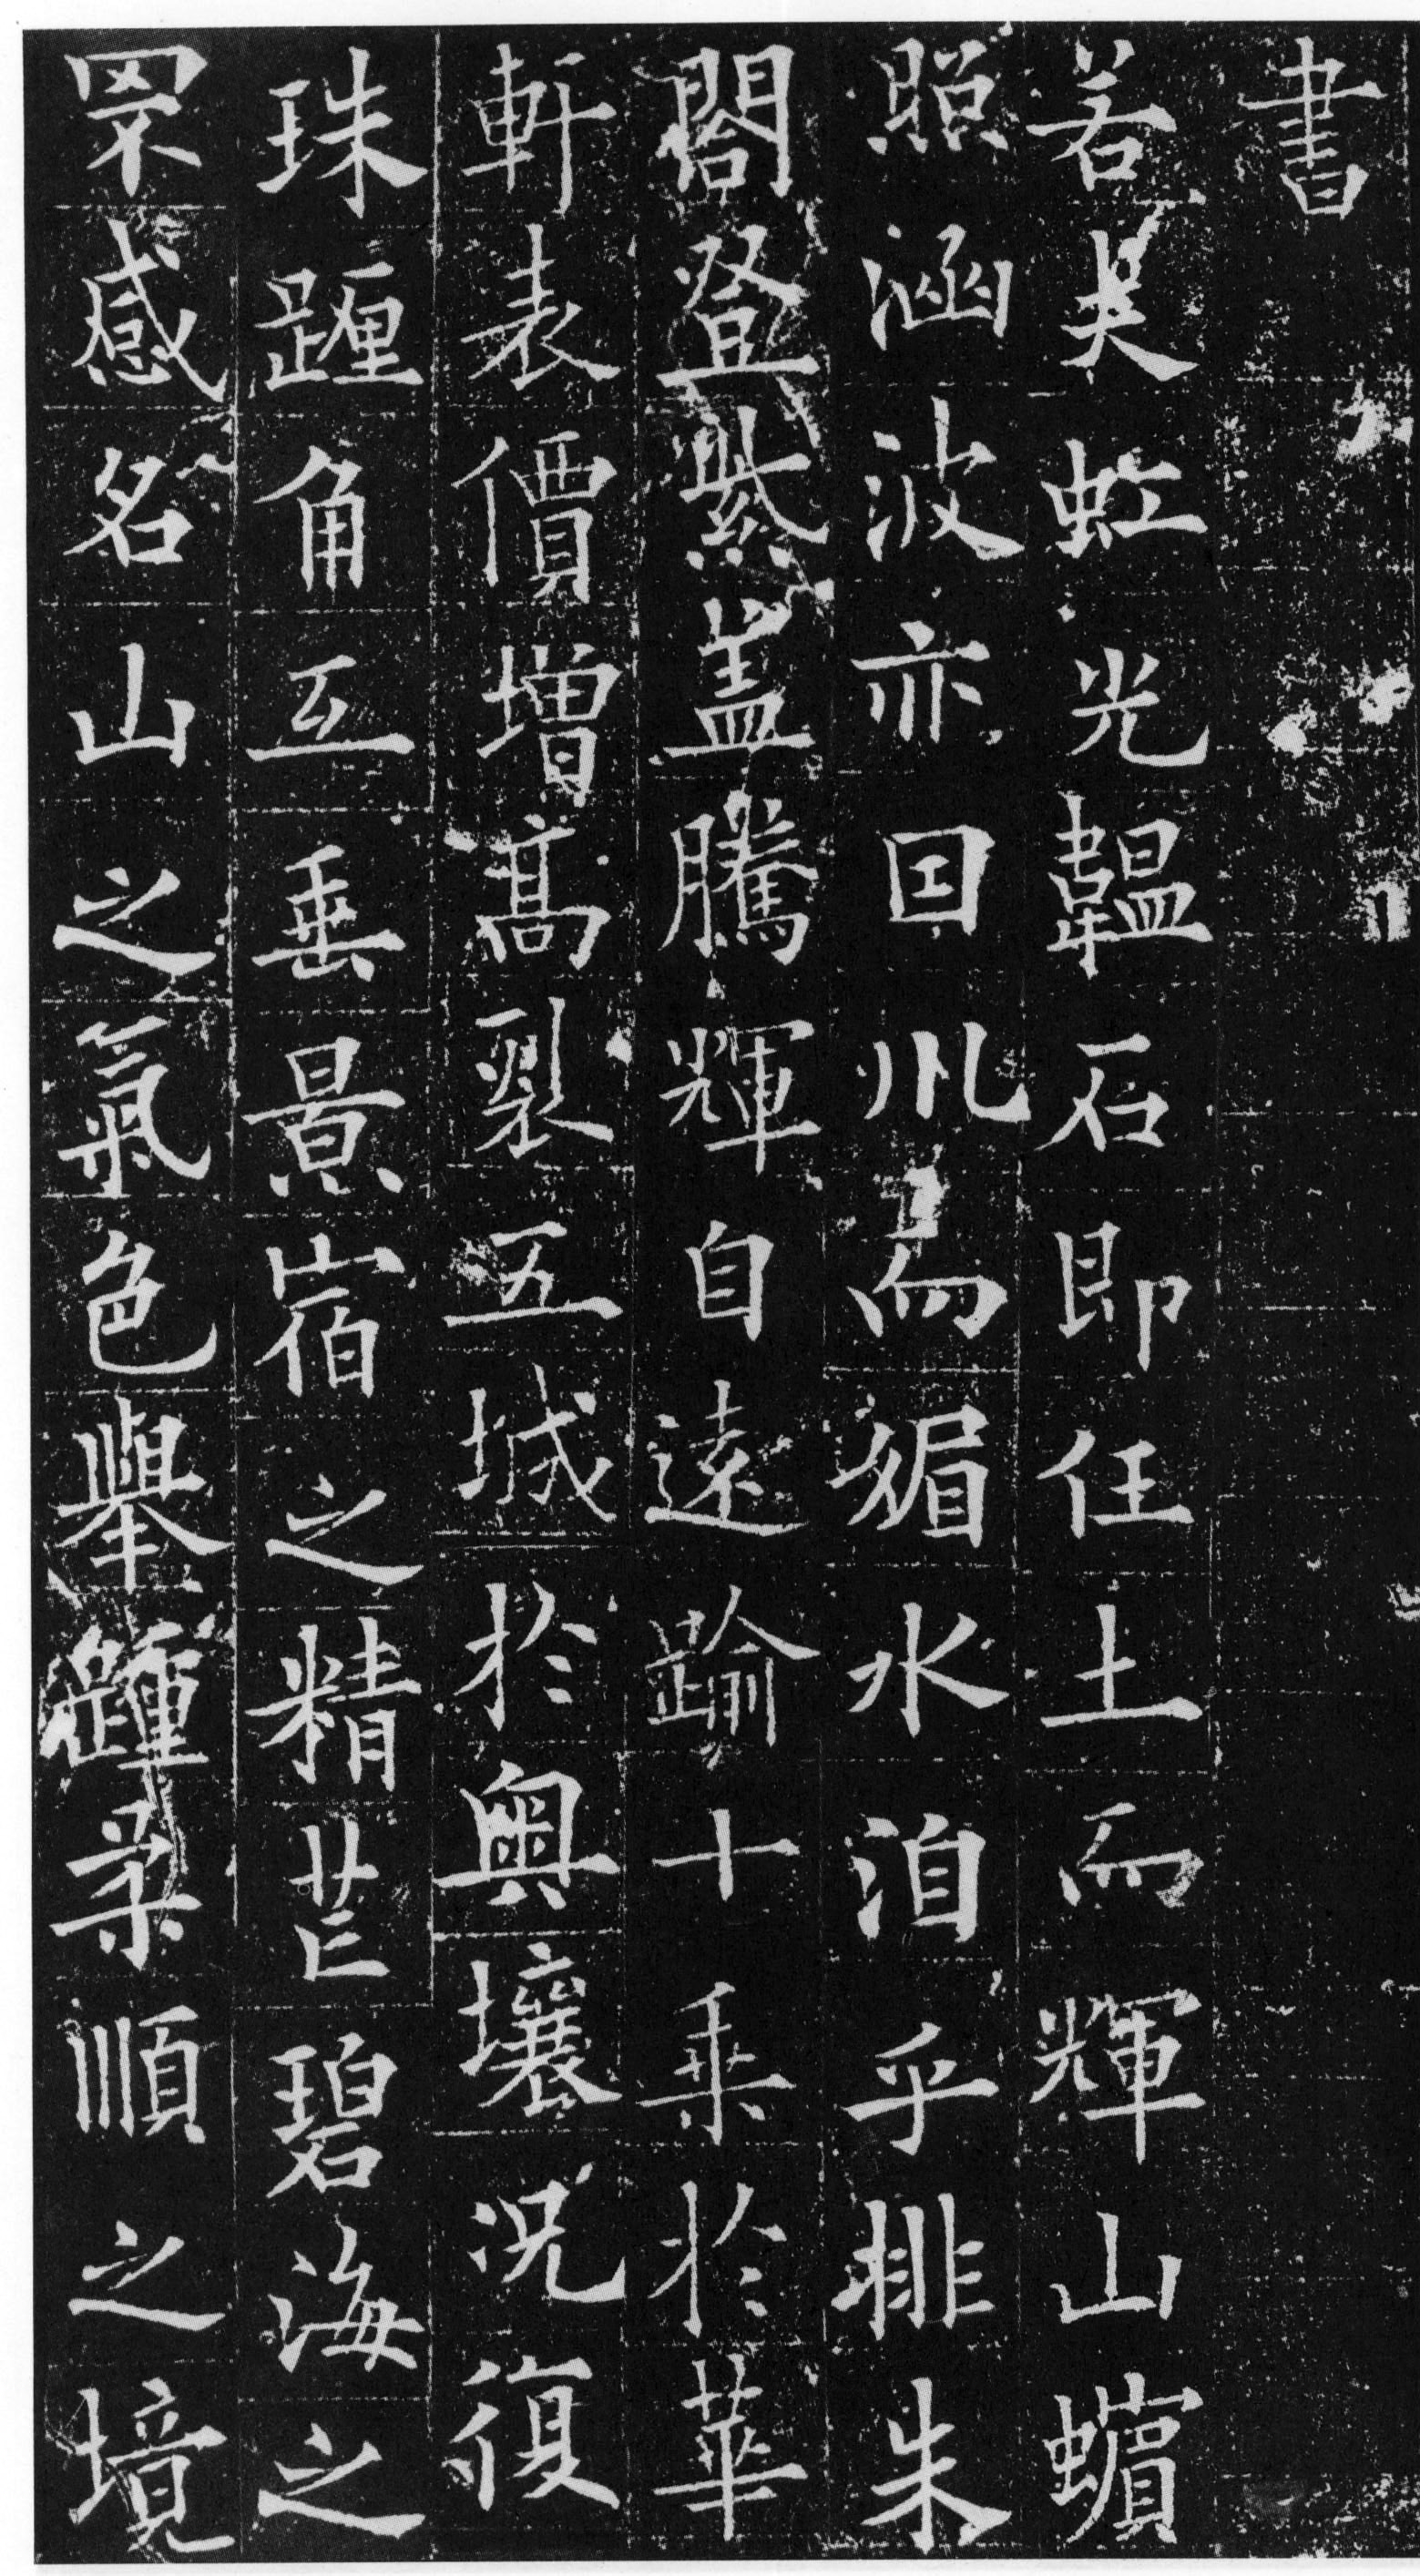 書
若夫虹光韞石即任土而輝山蠙
照涵波亦因川而媚水洎乎排朱
閤登紫盖騰輝自遠踰十乘於華
軒表價增髙裂五城於奧壤況復
珠躔角互垂景宿之精芒碧海之
罘感名山之氣色舉踵柔順之境